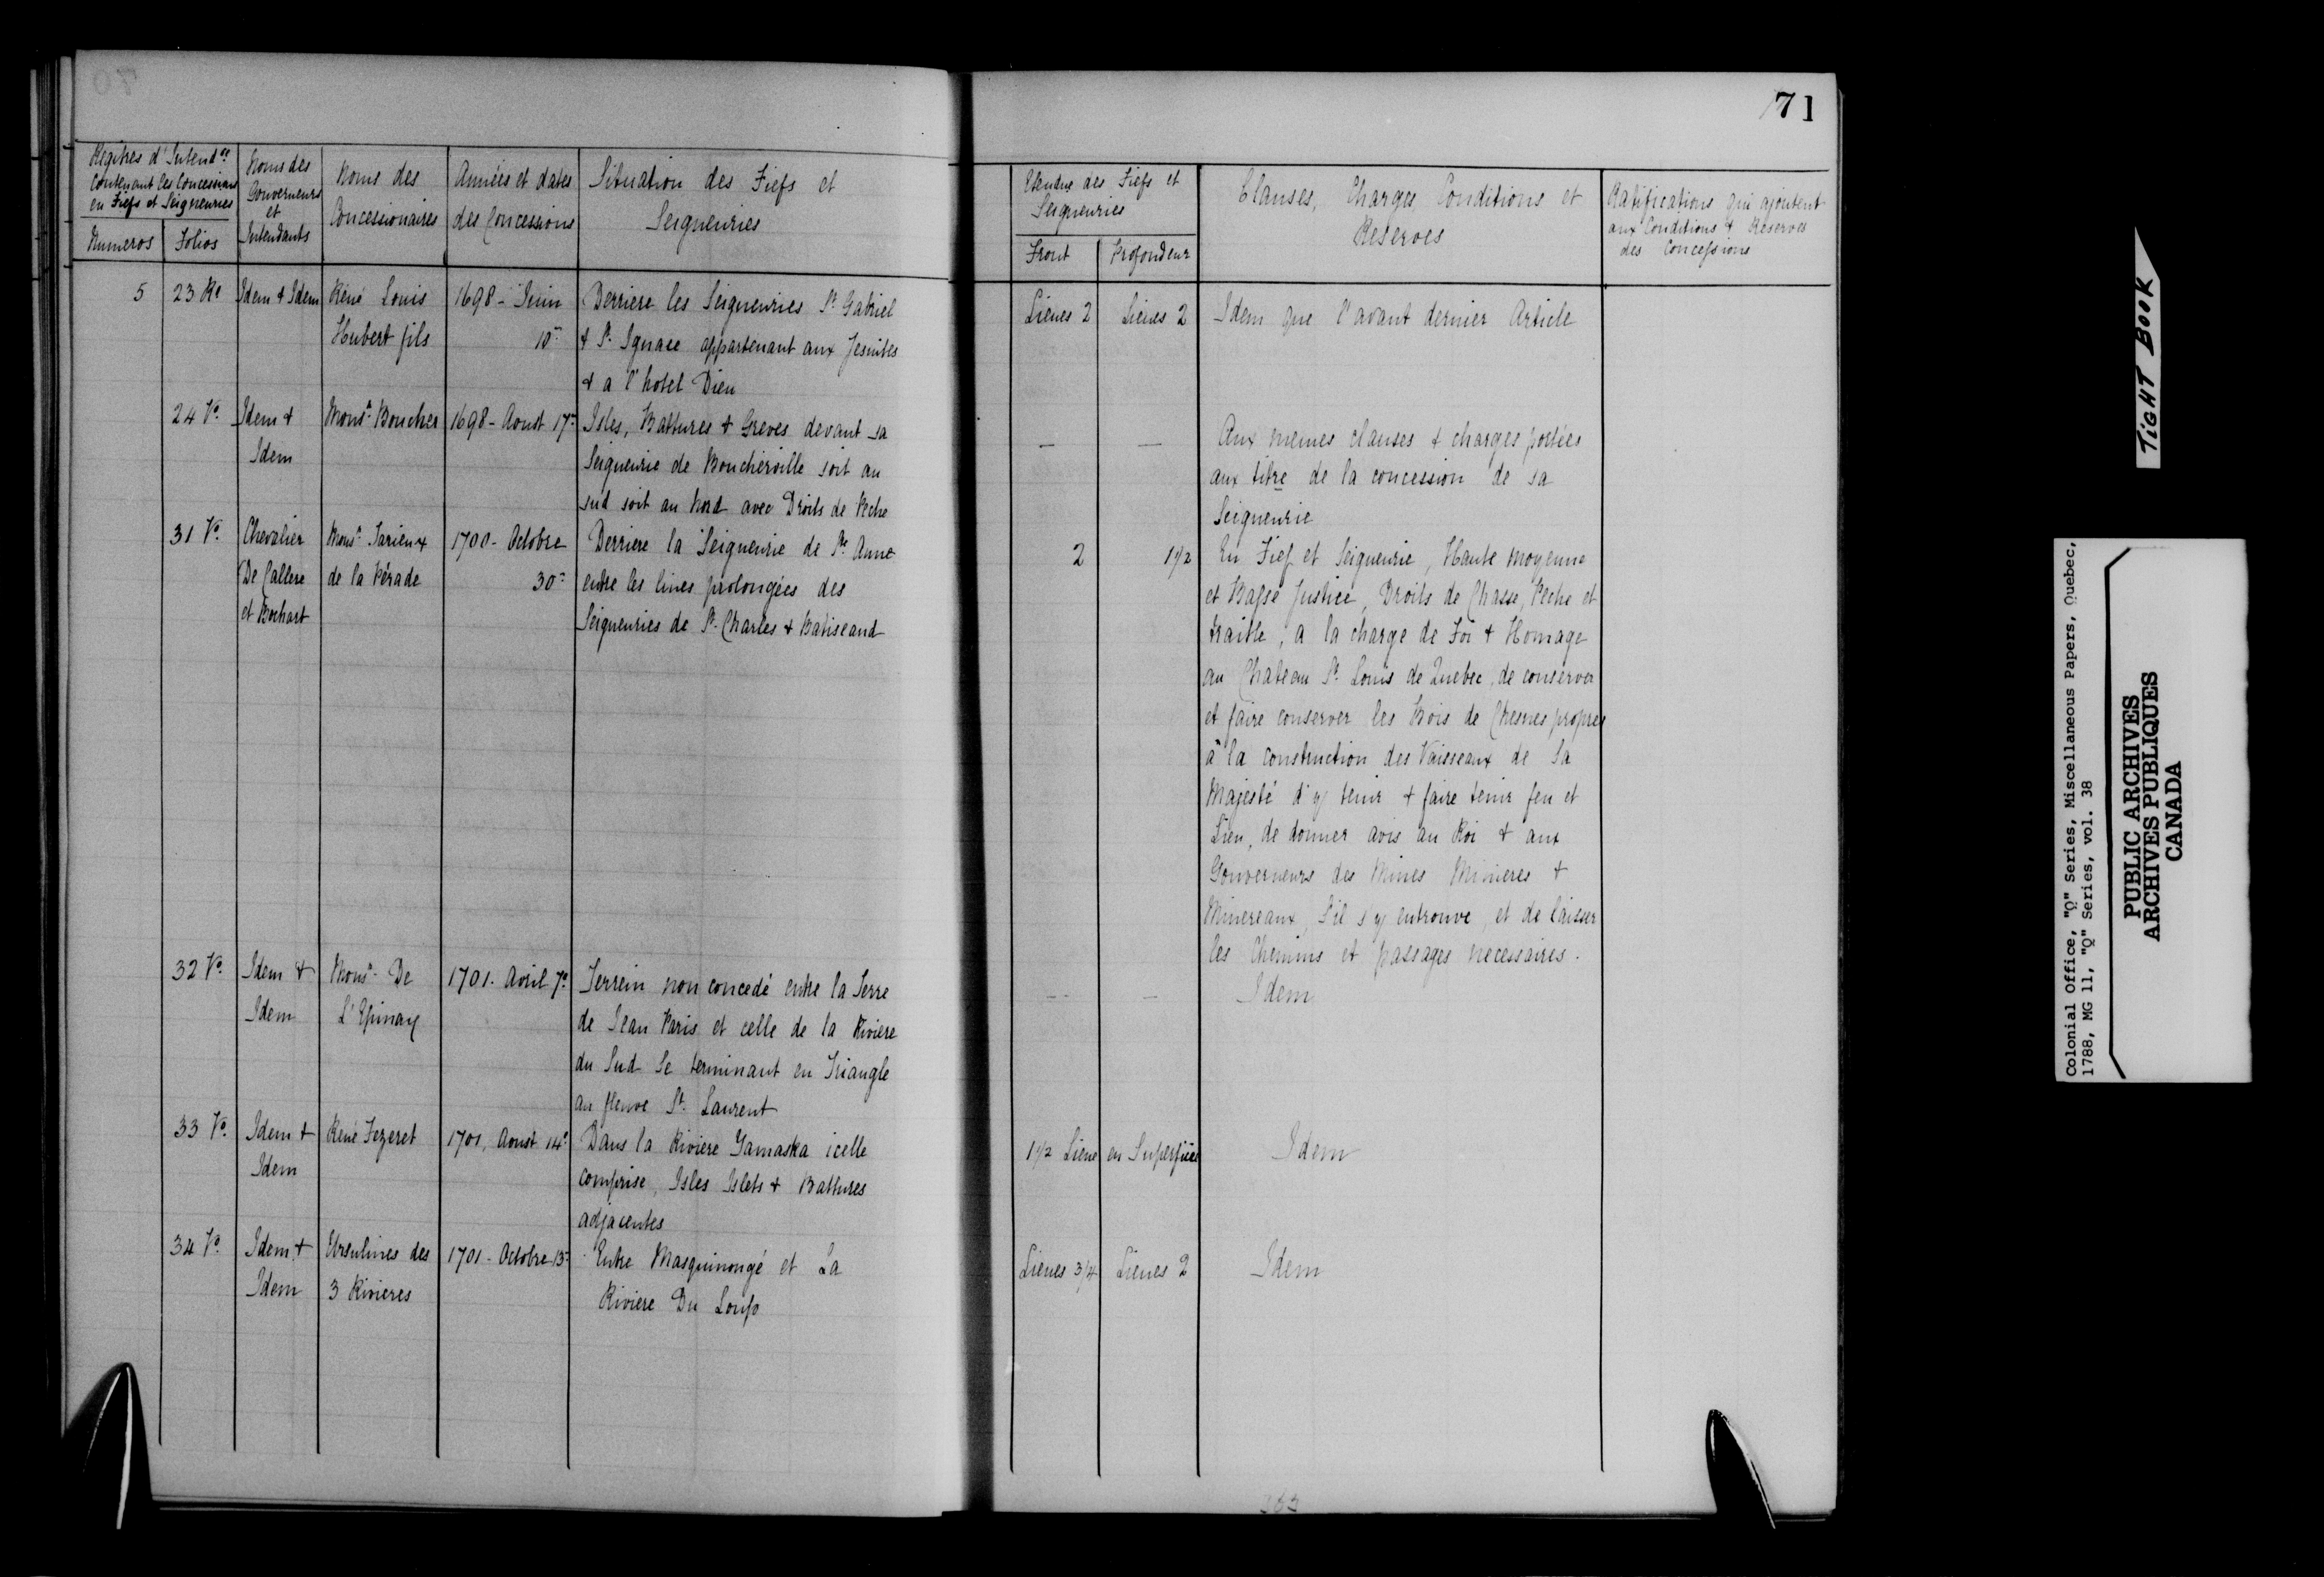 71
Regîtres d'Intend.ce
contenant les Concessions
en Fiefs et Seigneuries
Numeros Folios
Noms des
Gouverneurs
et
Intendants
Noms des
Concessionaires
Années et dates
des Concessions
Situation des Fiefs et
Seigneuries
Etendue des Fiefs et
Seigneuries
Front Profondeur
Clauses, Charges Conditions et
Reserves
Ratifications qui ajoutent
aux Conditions & Reserves
des Concessions
5 23 Ro
Idem & Idem
Réné Louis
Hubert fils
1698 - Juin
10
Derriere les Seigneuries St. Gabriel
& St. Ignace appartenant aux Jesuites
& a l'hotel Dieu
Lieues 2 Lieues 2
Idem que l'avant dernier Article
24 Vo.
Idem &
Idem
Monsr. Boucher
1698 - Aoust 17
Isles, Battures & Greves devant sa
Seigneurie de Boucherville soit au
sud soit au Nord avec Droits de Peche
— —
Aux memes clauses & charges portées
aux titre de la concession de sa
Seigneurie
31 Vo.
Chevalier
De Callere
et Bochart
Monsr. Tarieux
de la Pérade
1700 - Octobre
30
Derriere la Seigneurie de Ste Anne
entre les lines prolongées des
Seigneuries de St. Charles & Batiscand
2 1 1/2
En Fief et Seigneurie, Haute moyenne
et Basse Justice, Droits de Chasse, Peche et
traitte, a la charge de Foi & Homage
au Chateau St. Louis de Quebec, de conserver
et faire conserver les Bois de Chesnes propres
à la construction des Vaisseaux de Sa
Majesté d'y tenir & faire tenir feu et
Lieu, de donner avis au Roi & aux
Gouverneurs des Mines Minieres &
Minereaux, S'il s'y entrouve, et de laisser
les Chemins et passages necessaires.
32 Vo.
Idem &
Idem
Monsr. De
L'Epinay
1701. Avril 7e
Terrein non concedé entre la Terre
de Jean Paris et celle de la Riviere
du Sud Se terminant en Triangle
au fleuve St. Laurent
-- —
Idem
33 Vo.
Idem &
Idem
René Fezeret
1701, Aoust 14e
Dans la Riviere Yamaska icelle
comprise, Isles Islets & Battures
adjacentes
1 1/2 Lieue en Superficie
Idem
34 Vo.
Idem &
Idem
Ursulines des
3 Rivieres
1701 - Octobre 13
Entre Masquinongé et La
Riviere Du Loup
Lieues 3/4 Lieues 2
Idem
TIGHT BOOK
Colonial Office, "Q" Series, Miscellaneous Papers, Quebec,
1788, MG 11, "Q" Series, vol. 38
PUBLIC ARCHIVES
ARCHIVES PUBLIQUES
CANADA